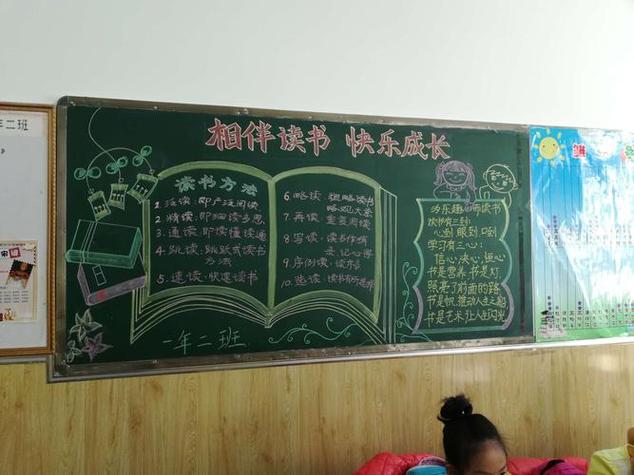 年二班
相伴读书 快乐成长
读书方法
1. 泛读:即广泛阅读
2. 精读:即细读多思
3. 通读:即读懂读通
4. 跳读:跳跃式读书
方法
5. 速读:快速读书
6. 略读:粗略读书
略观大意
7. 再读:重复阅读
8. 写读:读书作摘
录、记心得
9. 序例读:读序
10. 选读:读书有所选择
为乐趣而读书
读书有三到:
心到 眼到 口到
学习有三心:
信心、决心、恒心
书是营养 书是灯,
照亮了前面的路
书是帆,推动人生之船
书是艺术,让人生闪光
一年二班